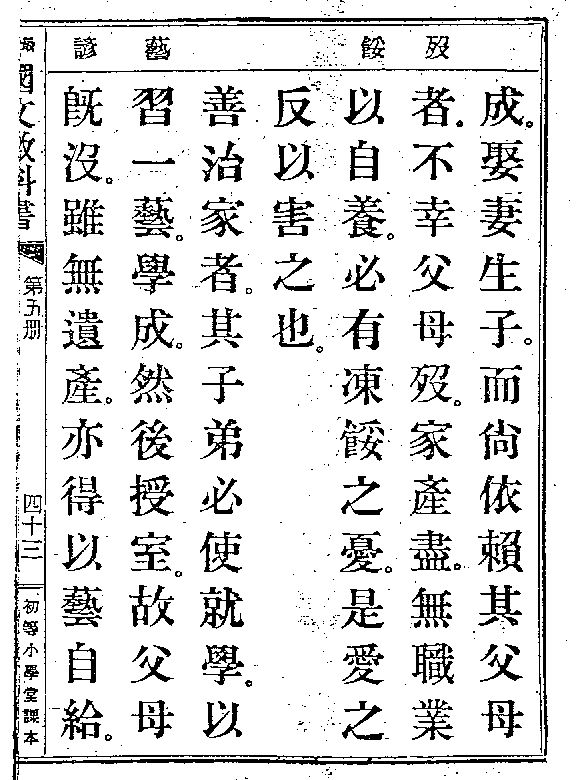 歿 餒 藝 諺
成。娶妻生子。而尙依賴其父母
者。不幸父母歿。家產盡。無職業
以自養。必有凍餒之憂。是愛之
反以害之也。
善治家者。其子弟必使就學。以
習一藝。學成。然後授室。故父母
旣沒。雖無遺產。亦得以藝自給。
國文教科書 第五册 四十三 初等小學堂課本